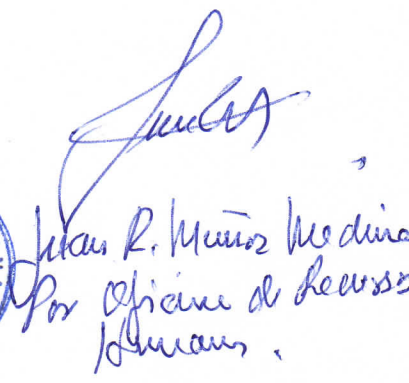 Juan R. Muñoz Medina
Por Oficina de Recursos
Humanos.